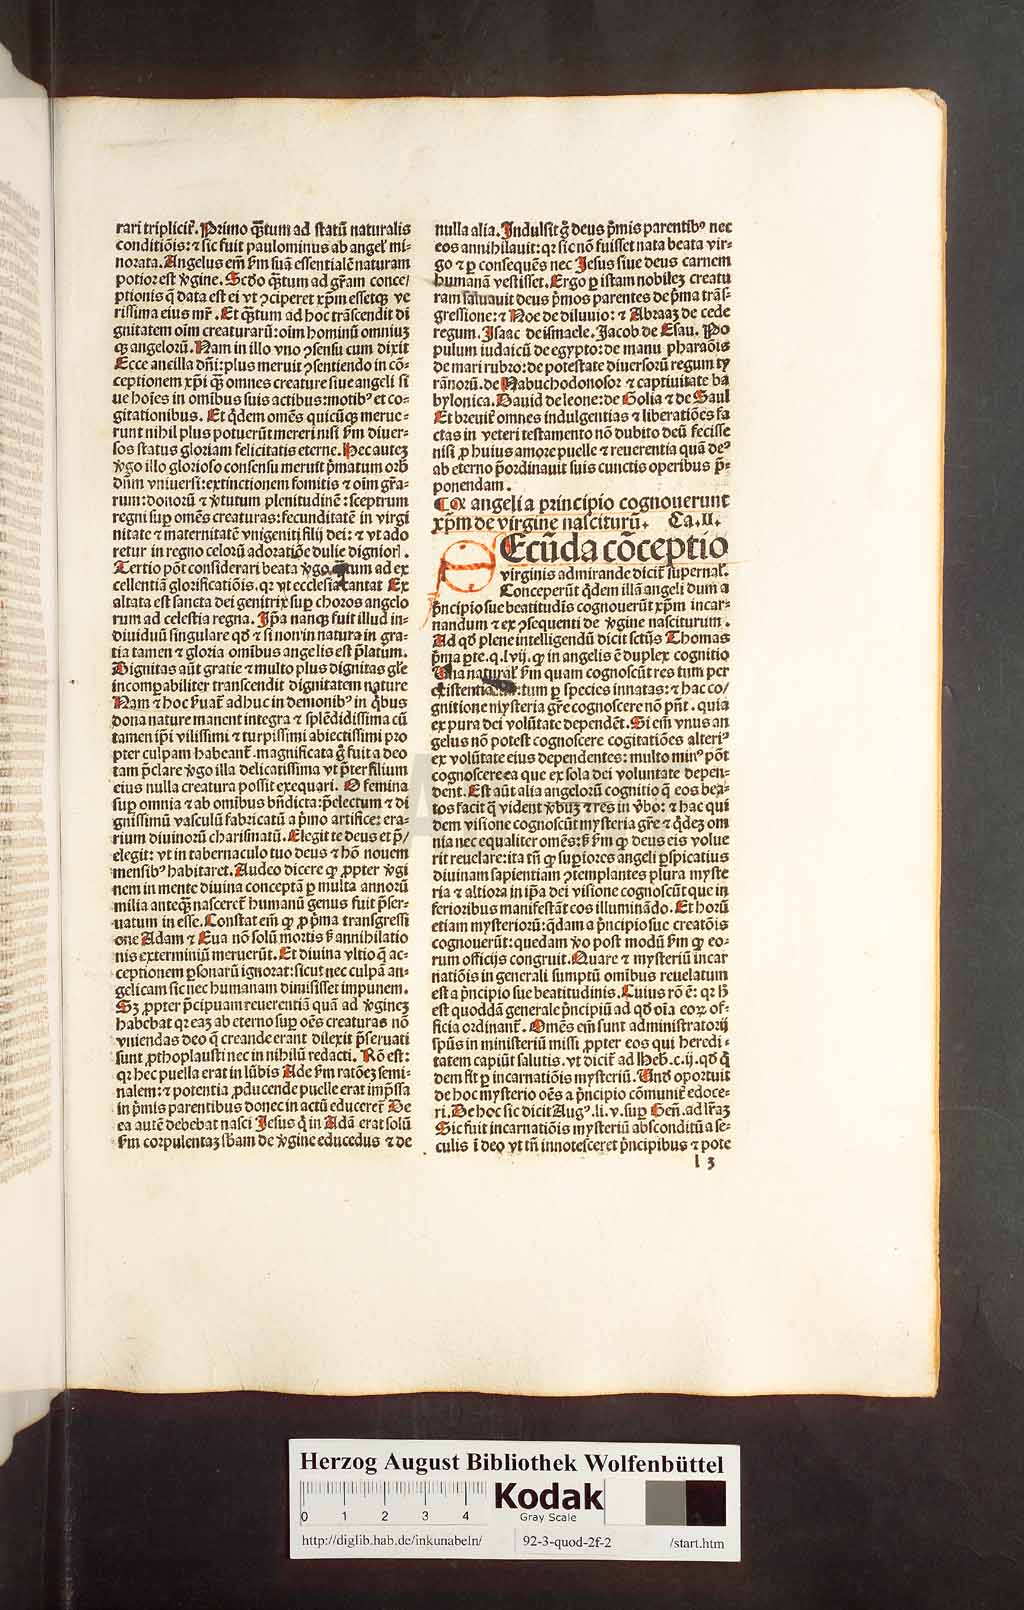 rari tripliciť. Primo qȝtum ad statū naturalis
conditiōis: ⁊ sic fuit paulominus ab angeľ mi-
norata. Angelus em̄ ẜm suā essentialē naturam
potior est v̓gine. Scd̓o qȝtum ad gr̄am conce/
ptionis q̄ data est ei vt ꝯciperet xp̄m essetqꝫ ve
rissima eius mr̄. Et qȝtum ad hoc trāscendit di
gnitatem oīm creaturarū: oim hominū omniuȝ
qꝫ angelorū. Nam in illo vno ꝯsensu cum dixit
Ecce ancilla dn̄i: plus meruit ꝯsentiendo in cō-
ceptionem xp̄i qȝ omnes creature siue angeli si
ue hoīes in omībus suis actibus: motibꝰ et co-
gitationibus. Et q̇dem omēs quicūqꝫ merue-
runt nihil plus potuerūt mereri nisi ẜm diuer-
sos status gloriam felicitatis eterne. Hec auteȝ
v̓go illo glorioso consensu meruit p̄matum orb̓
dn̄m vniuersi: extinctionem fomitis ⁊ oim gr̄a-
rum: donorū ⁊ v̓tutum plenitudinē: sceptrum
regni suꝑ omēs creaturas: fecunditatē in virgi
nitate ⁊ maternitatē vnigeniti filij dei: ⁊ vt ado
retur in regno celorū adoratiōe dulie digniorī.
Tertio pōt considerari beata v̓go qȝtum ad ex
cellentiā glorificatiōis. qꝛ vt ecclesia cantat Ex
altata est sancta dei genitrix suꝑ choros angelo
rum ad celestia regna. Ip̄a nanqꝫ fuit illud in-
diuiduū singulare qd̓ ⁊ si non in natura in gra-
tia tamen ⁊ gloria omībus angelis est p̄latum.
Dignitas aūt gratie ⁊ multo plus dignitas gl̄e
incompabiliter transcendit dignitatem nature
Nam ⁊ hoc ẜuať adhuc in demonibꝰ in q̇bus
dona nature manent integra ⁊ splēdidissima cū
tamen ip̄i vilissimi ⁊ turpissimi abiectissimi pro
pter culpam habeanť. magnificata g̊ fuit a deo
tam p̄clare v̓go illa delicatissima vt p̄ter filium
eius nulla creatura possit exequari. O femina
suꝑ omnia ⁊ ab omībus bn̄dicta: p̄electum ⁊ di
gnissimū vasculū fabricatū a p̄mo artifice: era-
rium diuinorū charismatū. Elegit te deus et p̄/
elegit: vt in tabernaculo tuo deus ⁊ hō nouem
mensibꝰ habitaret. Audeo dicere ꝙ ꝓpter v̓gi
nem in mente diuina conceptā ꝑ multa annorū
milia anteqȝ nascereť humanū genus fuit p̄ser-
uatum in esse. Constat em̄ ꝙ ꝓ p̄ma transgressi
one Adam ⁊ Eua nō solū mortis ẜ annihilatio
nis exterminiū meruerūt. Et diuina vltio q̄ ac-
ceptionem ꝑsonarū ignorat: sicut nec culpā an-
gelicam sic nec humanam dimisisset impunem.
Sȝ ꝓpter p̄cipuam reuerentiā quā ad v̓gineȝ
habebat qꝛ eaȝ ab eterno suꝑ oēs creaturas nō
vniendas deo q̄ creande erant dilexit p̄seruati
sunt ꝓthoplausti nec in nihilū redacti. Rō est:
qꝛ hec puella erat in lūbis Ade ẜm ratōeȝ semi-
nalem: ⁊ potentia ꝓducende puelle erat imp̄ssa
in p̄mis parentibus donec in actū educereť De
ea autē debebat nasci Jesus q̇ in Adā erat solū
ẜm corpulentaȝ sb̄am de v̓gine educedus ⁊ de
nulla alia. Indulsit g̊ deus p̄mis parentibꝰ nec
eos annihilauit: qꝛ sic nō fuisset nata beata vir-
go ⁊ ꝑ consequēs nec Jesus siue deus carnem
humanā vestisset. Ergo ꝑ istam nobileȝ creatu
ram saluauit deus p̄mos parentes de p̄ma trās-
gressione: ⁊ Noe de diluuio: ⁊ Abraaȝ de cede
regum. Isaac de ismaele. Jacob de Esau. Po
pulum iudaicū de egypto: de manu pharaōis
de mari rubro: de potestate diuersorū regum ty
rānorū. de Nabuchodonosor ⁊ captiuitate ba
bylonica. Dauid de leone: de Golia ⁊ de Saul
Et breuiť omnes indulgentias ⁊ liberatiōes fa
ctas in veteri testamento nō dubito deū fecisse
nisi ꝓ huius amore puelle ⁊ reuerentia quā deꝰ
ab eterno p̄ordinauit suis cunctis operibus p̄-
ponendam.
¶ Qꝙ angeli a principio cognouerunt
xp̄m de virgine nasciturū. Ca. II.
Ecūda cōceptio
virginis admirande diciť supernaľ.
Conceperūt q̇dem illā angeli dum a
p̄ncipio sue beatitudis cognouerūt xp̄m incar-
nandum ⁊ ex ꝯsequenti de v̓gine nasciturum.
Ad qd̓ plene intelligendū dicit sctūs Thomas
p̄ma ꝑte. q. lvij. ꝙ in angelis ē duplex cognitio
Una naturaľ ẜm quam cognoscūt res tum per
existentia :tum ꝑ species innatas: ⁊ hac co/
gnitione mysteria gr̄e cognoscere nō pn̄t. quia
ex pura dei volūtate dependēt. Si em̄ vnus an
gelus nō potest cognoscere cogitatiōes alteriꝰ
ex volūtate eius dependentes: multo minꝰ pōt
cognoscere ea que ex sola dei voluntate depen-
dent. Est aūt alia angelorū cognitio q̄ eos bea-
tos facit q̄ vident v̓buȝ ⁊ res in v̓bo: ⁊ hac qui
dem visione cognoscūt mysteria gr̄e ⁊ q̇deȝ om
nia nec equaliter omēs: ẜ ẜm ꝙ deus eis volue
rit reuelare: ita tn̄ ꝙ suꝑiores angeli ꝑspicatius
diuinam sapientiam ꝯtemplantes plura myste
ria ⁊ altiora in ip̄a dei visione cognoscūt que in
ferioribus manifestāt eos illuminādo. Et horū
etiam mysteriorū: q̇dam a p̄ncipio suc creatōis
cognouerūt: quedam v̓o post modū ẜm ꝙ eo-
rum officijs congruit. Quare ⁊ mysteriū incar
natiōis in generali sumptū omībus reuelatum
est a p̄ncipio sue beatitudinis. Cuius rō ē: qꝛ h̄
est quoddā generale p̄ncipiū ad qd̓ oīa eoꝝ of-
ficia ordinanť. Omēs em̄ sunt administratorij
sp̄us in ministeriū missi ꝓpter eos qui heredi-
tatem capiūt salutis. vt diciť ad Heb̓. c. ij. qd̓ q̇
dem fit ꝑ incarnatiōis mysteriū. Und̓ oportuit
de hoc mysterio oēs a p̄ncipio cōmuniť edoce-
ri. De hoc sic dicit Augꝰ. li. v. suꝑ Geñ. ad lr̄aȝ
Sic fuit incarnatiōis mysteriū absconditū a se-
culis ī deo vt tn̄ innotesceret p̄ncipibus ⁊ pote
l 3
Herzog August Bibliothek Wolfenbüttel
0 1 2 3 4
Kodak
Gray Scale
http://diglib.hab.de/inkunabeln/ 92-3-quod-2f-2 /start.htm